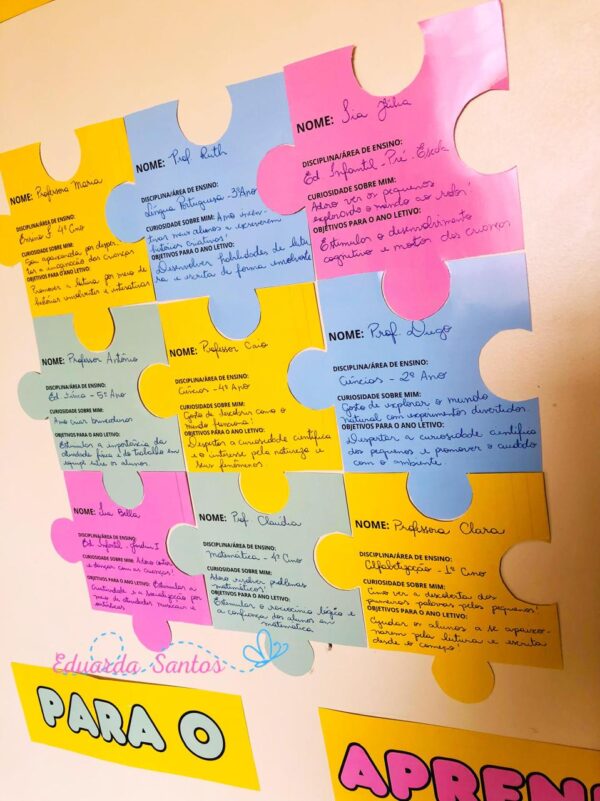 NOME: Professora Maria
DISCIPLINA/ÁREA DE ENSINO:
Ensino I 4º Ano
CURIOSIDADE SOBRE MIM:
Sou apaixonada por desper-
tar a imaginação das crianças
OBJETIVOS PARA O ANO LETIVO:
Promover a leitura por meio de
histórias envolventes e interativas
NOME: Prof. Ruth
DISCIPLINA/ÁREA DE ENSINO:
Língua Portuguesa - 3º Ano
CURIOSIDADE SOBRE MIM: Amo incen-
tivar meus alunos a escreverem
histórias criativas!
OBJETIVOS PARA O ANO LETIVO:
Desenvolver habilidades de leitu
ra e escrita de forma envolvente
NOME: Tia Júlia
DISCIPLINA/ÁREA DE ENSINO:
Ed. Infantil - Pré Escola
CURIOSIDADE SOBRE MIM:
Adoro ver os pequenos
explorando o mundo ao redor!
OBJETIVOS PARA O ANO LETIVO:
Estimular o desenvolvimento
cognitivo e motor das crianças
NOME: Professor Antônio
DISCIPLINA/ÁREA DE ENSINO:
Ed. Física - 5º Ano
CURIOSIDADE SOBRE MIM:
Amo criar brincadeiras
OBJETIVOS PARA O ANO LETIVO:
Estimular a importância da
atividade física e do trabalho em
equipe entre os alunos.
NOME: Professor Caio
DISCIPLINA/ÁREA DE ENSINO:
Ciências - 4º Ano
CURIOSIDADE SOBRE MIM:
Gosto de descobrir como o
mundo funciona!
OBJETIVOS PARA O ANO LETIVO:
Despertar a curiosidade científica
e o interesse pela natureza e
seus fenômenos
NOME: Prof. Diogo
DISCIPLINA/ÁREA DE ENSINO:
Ciências - 2º Ano
CURIOSIDADE SOBRE MIM:
Gosto de explorar o mundo
natural com experimentos divertidos.
OBJETIVOS PARA O ANO LETIVO:
Despertar a curiosidade científica
dos pequenos e promover o cuidado
com o ambiente
NOME: Tia Bella
DISCIPLINA/ÁREA DE ENSINO:
Ed. Infantil - Jardim I
CURIOSIDADE SOBRE MIM: Adoro cantar
e dançar com as crianças!
OBJETIVOS PARA O ANO LETIVO: Estimular a
criatividade e a socialização por
meio de atividades musicais e
artísticas
NOME: Prof Claúdia
DISCIPLINA/ÁREA DE ENSINO:
Matemática - 4º Ano
CURIOSIDADE SOBRE MIM:
Adoro resolver problemas
matemáticos!
OBJETIVOS PARA O ANO LETIVO:
Estimular o raciocínio lógico e
a confiança dos alunos em
matemática
NOME: Professora Clara
DISCIPLINA/ÁREA DE ENSINO:
Alfabetização - 1º Ano
CURIOSIDADE SOBRE MIM:
Amo ver a descoberta das
primeiras palavras pelos pequenos!
OBJETIVOS PARA O ANO LETIVO:
Ajudar os alunos a se apaixo-
narem pela leitura e escrita
desde o começo!
Eduarda Santos
PARA O
APREN